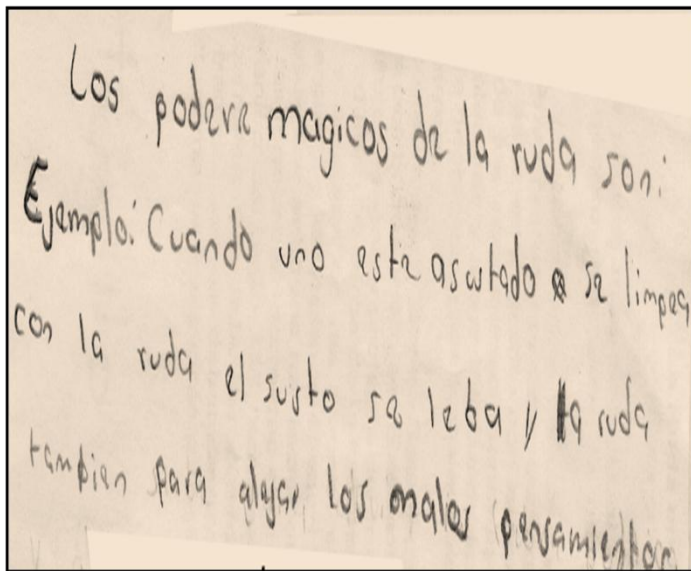 Los podere magicos de la ruda son:
Ejemplo: Cuando uno este asustado se limpea
con la ruda el susto se leba y la ruda
tampien para alejar los malos pensamientos